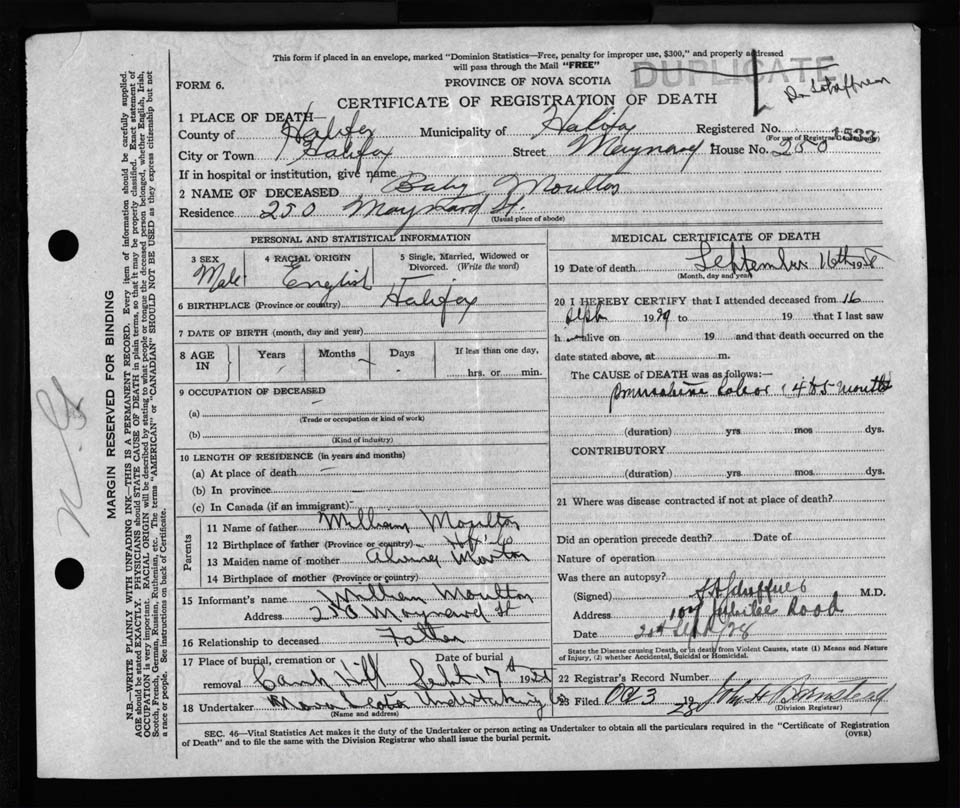 This form if placed in an envelope, marked "Dominion Statistics—Free, penalty for improper use, $300," and properly addressed
will pass through the Mail "FREE"
DUPLICATE
FORM 6.
PROVINCE OF NOVA SCOTIA
CERTIFICATE OF REGISTRATION OF DEATH
1 PLACE OF DEATH—
County of Halifax Municipality of Halifax Registered No. 1533
(For use of Registrar General only)
City or Town Halifax Street Maynard House No. 250
If in hospital or institution, give name
2 NAME OF DECEASED Baby Moulton
Residence 250 Maynard St.
(Usual place of abode)
PERSONAL AND STATISTICAL INFORMATION
3 SEX 4 RACIAL ORIGIN 5 Single, Married, Widowed or Divorced. (Write the word)
Male English
6 BIRTHPLACE (Province or country) Halifax
7 DATE OF BIRTH (month, day and year)
8 AGE IN Years Months Days If less than one day, hrs. or min.
9 OCCUPATION OF DECEASED
(a)
(Trade or occupation or kind of work)
(b)
(Kind of industry)
10 LENGTH OF RESIDENCE (in years and months)
(a) At place of death
(b) In province
(c) In Canada (if an immigrant)
Parents
11 Name of father William Moulton
12 Birthplace of father (Province or country)
13 Maiden name of mother
14 Birthplace of mother (Province or country)
15 Informant's name William Moulton
Address 250 Maynard St
16 Relationship to deceased Father
17 Place of burial, cremation or removal Camp Hill Date of burial Sept 17th 19
18 Undertaker Nova Scotia Undertaking Co
(Name and address)
MEDICAL CERTIFICATE OF DEATH
19 Date of death September 16th
(Month, day and year)
20 I HEREBY CERTIFY that I attended deceased from 16
Sept 19 to 19 that I last saw
h alive on 19 and that death occurred on the
date stated above, at m.
The CAUSE of DEATH was as follows:—
Labor 4 1/2 months
(duration) yrs mos dys.
CONTRIBUTORY
(duration) yrs mos dys.
21 Where was disease contracted if not at place of death?
Did an operation precede death? Date of
Nature of operation
Was there an autopsy?
(Signed) M.D.
Address Jubilee Road
Date Sept/28
State the Disease causing Death, or in death from Violent Causes, state (1) Means and Nature
of Injury, (2) whether Accidental, Suicidal or Homicidal.
22 Registrar's Record Number
23 Filed Oct 3 1928
(Division Registrar)
SEC. 46—Vital Statistics Act makes it the duty of the Undertaker or person acting as Undertaker to obtain all the particulars required in the "Certificate of Registration
of Death" and to file the same with the Division Registrar who shall issue the burial permit.
(OVER)
MARGIN RESERVED FOR BINDING
N.B.—WRITE PLAINLY WITH UNFADING INK—THIS IS A PERMANENT RECORD. Every item of information should be carefully supplied.
AGE should be stated EXACTLY. PHYSICIANS should STATE CAUSE OF DEATH in plain terms, so that it may be properly classified. Exact statement of
OCCUPATION is very important. RACIAL ORIGIN will be described by stating to what people or tongue the deceased person belonged, whether English, Irish,
Scotch, French, German, Russian, Ruthenian, etc. The terms "AMERICAN" or "CANADIAN" SHOULD NOT BE USED as they express citizenship but not
a race or people. See instructions on back of Certificate.